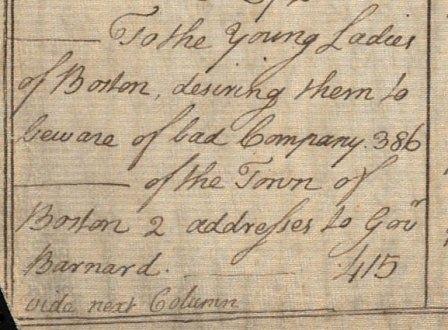 ——— To the Young Ladies
of Boston, desiring them to
beware of bad Company. 386
——— of the Town of
Boston 2 addresses to Gouʳ
Barnard. ——— 415
vide next Column